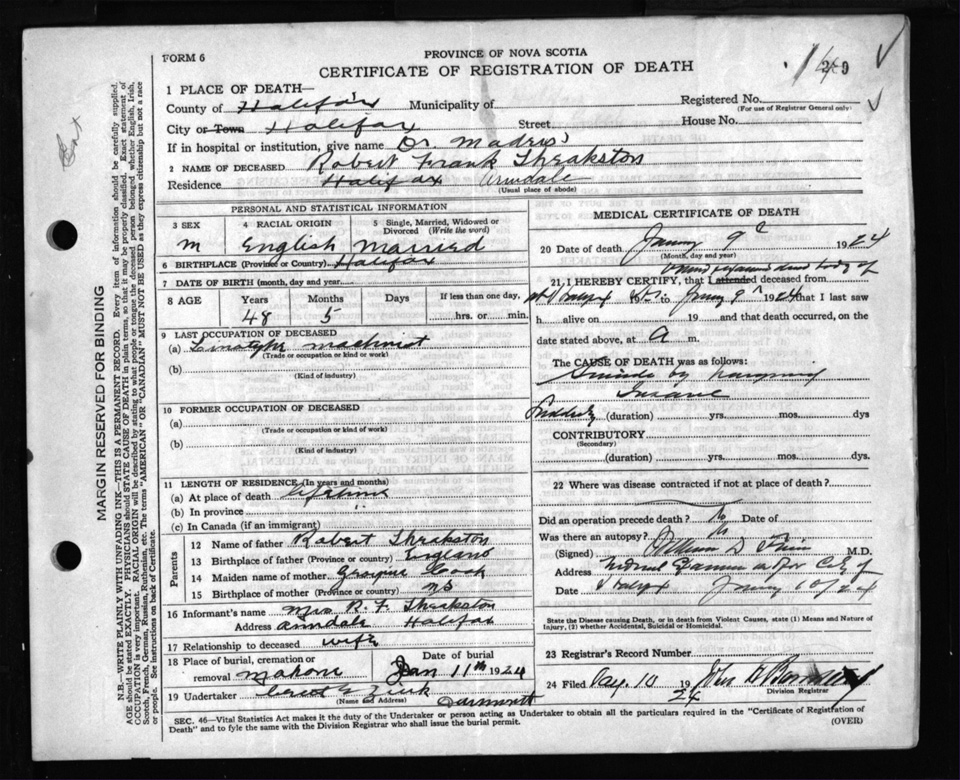 FORM 6
PROVINCE OF NOVA SCOTIA
CERTIFICATE OF REGISTRATION OF DEATH
1 PLACE OF DEATH—
County of Halifax Municipality of
Registered No.
(For use of Registrar General only)
City or Town Halifax Street House No.
If in hospital or institution, give name Dr.
2 NAME OF DECEASED Robert Frank Threakston
Residence Halifax Armdale
(Usual place of abode)
PERSONAL AND STATISTICAL INFORMATION
3 SEX 4 RACIAL ORIGIN 5 Single, Married, Widowed or Divorced (Write the word)
M English Married
6 BIRTHPLACE (Province or Country) Halifax
7 DATE OF BIRTH (month, day and year)
8 AGE Years Months Days If less than one day,
48 5 hrs. or min.
9 LAST OCCUPATION OF DECEASED
(a) Linotype machinist
(Trade or occupation or kind or work)
(b)
(Kind of industry)
10 FORMER OCCUPATION OF DECEASED
(a)
(Trade or occupation or kind or work)
(b)
(Kind of industry)
11 LENGTH OF RESIDENCE (In years and months)
(a) At place of death lifetime
(b) In province "
(c) In Canada (if an immigrant)
Parents
12 Name of father Robert Threakston
13 Birthplace of father (Province or country) England
14 Maiden name of mother Cook
15 Birthplace of mother (Province or country) NS
16 Informant's name Mrs R. F. Threakston
Address Armdale Halifax
17 Relationship to deceased wife
18 Place of burial, cremation or removal Date of burial
Jan 11th 1924
19 Undertaker Zink
(Name and Address) Dartmouth
MEDICAL CERTIFICATE OF DEATH
20 Date of death 9 1924
(Month, day and year)
21, I HEREBY CERTIFY, that I attended deceased from
dead body of
9 1924 that I last saw
h alive on 19 and that death occurred, on
date stated above, at A m.
The CAUSE OF DEATH was as follows:
Suicide by hanging
Insane
Suddenly (duration) yrs. mos. dys
CONTRIBUTORY
(Secondary)
(duration) yrs. mos. dys.
22 Where was disease contracted if not at place of death?
Did an operation precede death? No Date of
Was there an autopsy? No
(Signed) M.D.
Address Medical Examiner for City of
Date Halifax 24
State the Disease causing Death, or in death from Violent Causes, state (1) Means and Nature of Injury, (2) whether Accidental, Suicidal or Homicidal.
23 Registrar's Record Number
24 Filed 10 1924 John
Division Registrar
SEC. 46—Vital Statistics Act makes it the duty of the Undertaker or person acting as Undertaker to obtain all the particulars required in the "Certificate of Registration of
Death" and to fyle the same with the Division Registrar who shall issue the burial permit.
(OVER)
MARGIN RESERVED FOR BINDING
N.B.—WRITE PLAINLY WITH UNFADING INK—THIS IS A PERMANENT RECORD. Every item of information should be carefully supplied.
AGE should be stated EXACTLY. PHYSICIANS should STATE CAUSE OF DEATH in plain terms, so that it may be properly classified. Exact statement of
OCCUPATION is very important. RACIAL ORIGIN will be described by stating to what people or tongue the deceased person belonged whether English, Irish,
Scotch, French, German, Russian, Ruthenian, etc. The terms "AMERICAN" OR "CANADIAN" MUST NOT BE USED as they express citizenship but not a race
or people. See instructions on back of Certificate.